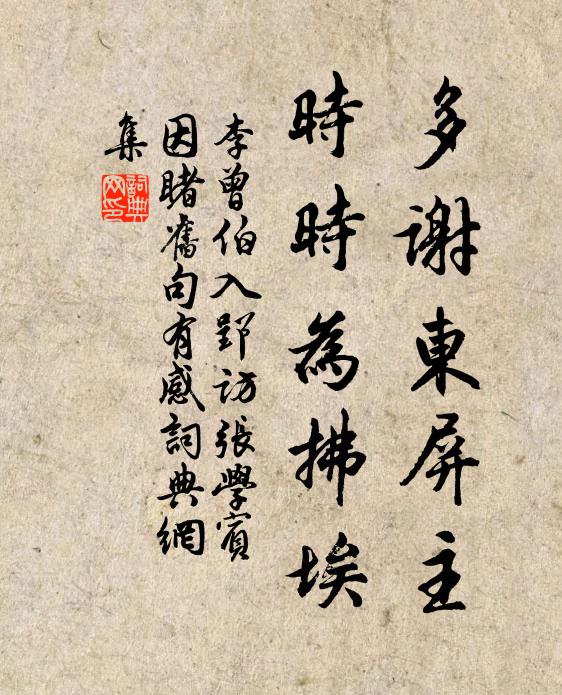 多謝東屏主
時時為拂埃
李曾伯入郢訪張學賓
因睹舊句有感詞典網
集
詞典
网印